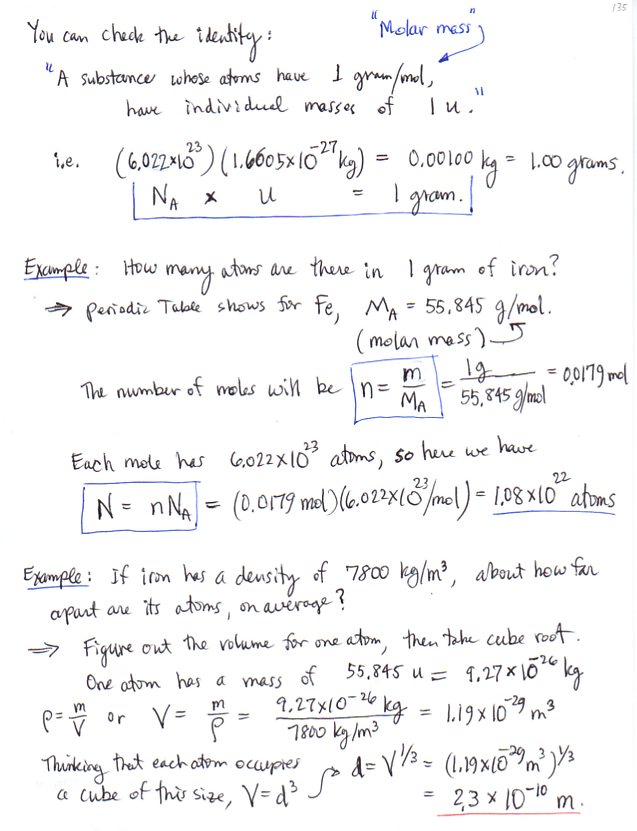 135
You can check the identity: "Molar mass"
"A substance whose atoms have 1 gram/mol,
have individual masses of 1 u."
i.e. (6.022×10²³)(1.6605×10⁻²⁷kg) = 0.00100 kg = 1.00 grams.
N_A × u = 1 gram.
Example: How many atoms are there in 1 gram of iron?
⇒ Periodic Table shows for Fe, M_A = 55.845 g/mol.
(molar mass)
The number of moles will be n = m/M_A = 1g/55.845 g/mol = 0.0179 mol
Each mole has 6.022×10²³ atoms, so here we have
N = nN_A = (0.0179 mol)(6.022×10²³/mol) = 1.08×10²² atoms
Example: If iron has a density of 7800 kg/m³, about how far
apart are its atoms, on average?
⇒ Figure out the volume for one atom, then take cube root.
One atom has a mass of 55.845 u = 9.27×10⁻²⁶ kg
ρ = m/V or V = m/ρ = 9.27×10⁻²⁶ kg/7800 kg/m³ = 1.19×10⁻²⁹ m³
Thinking that each atom occupies
a cube of this size, V=d³ d = V^1/3 = (1.19×10⁻²⁹ m³)^1/3
= 2.3 × 10⁻¹⁰ m.